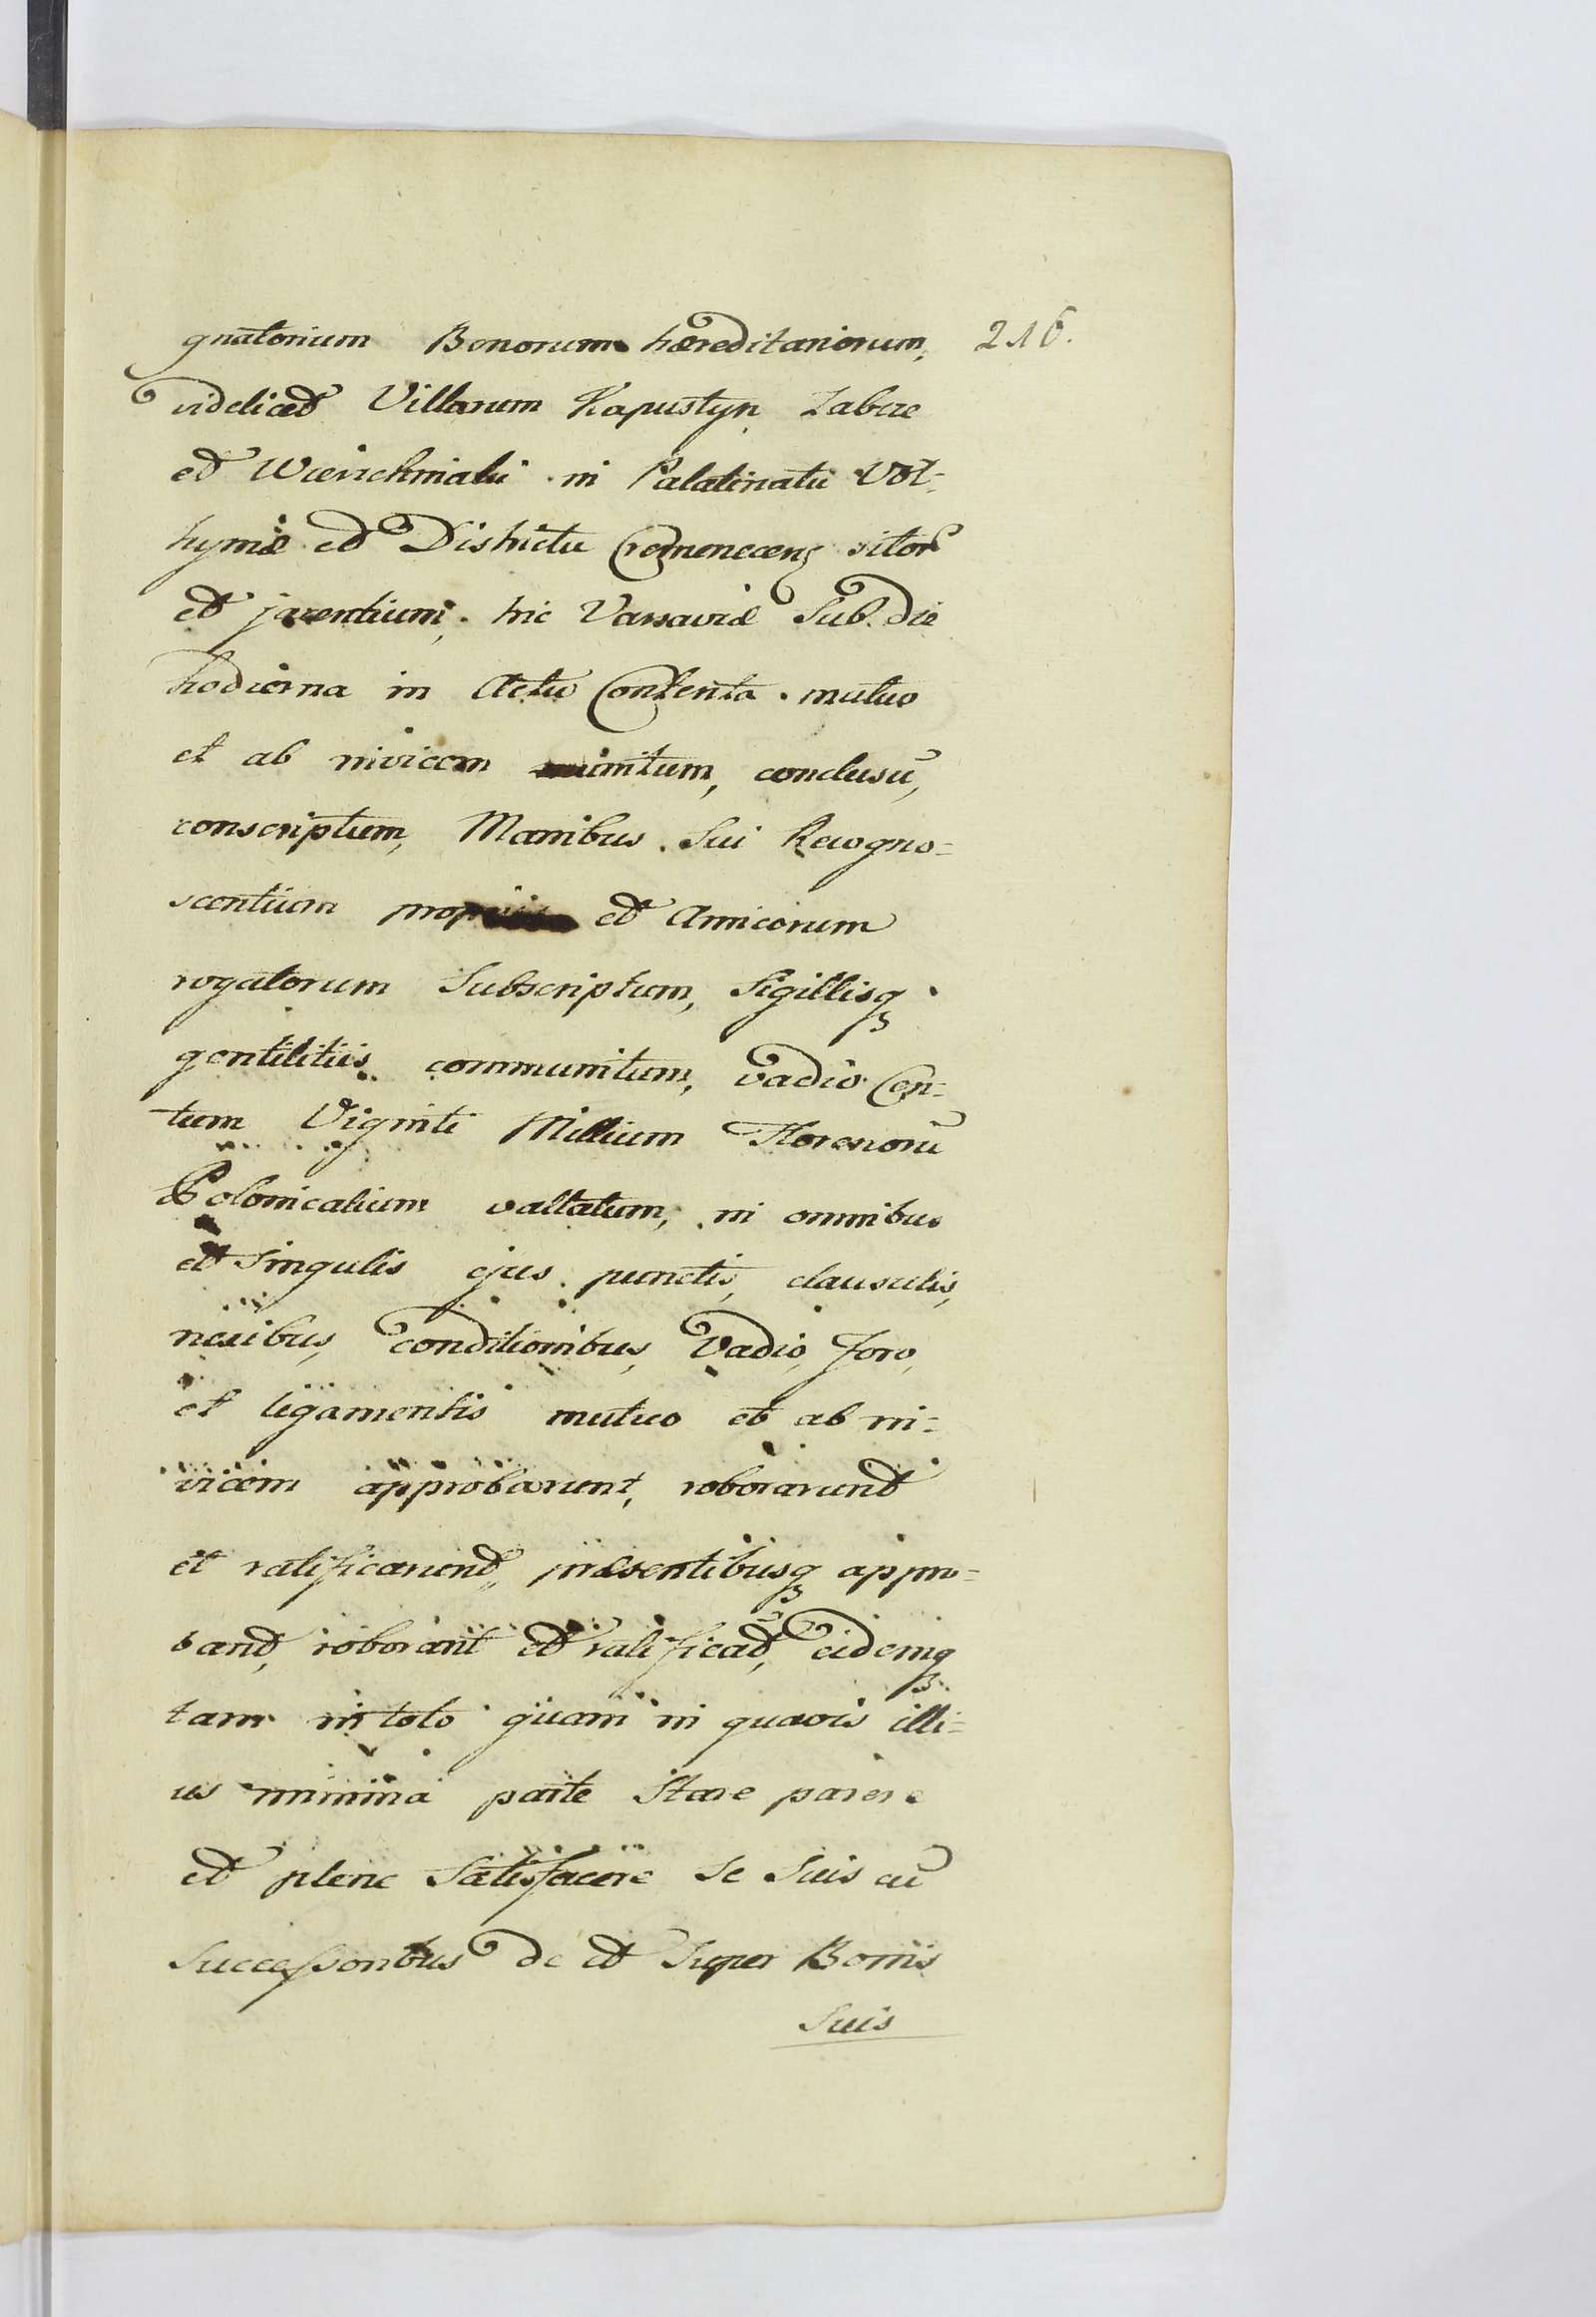 gnatorium Bonorum hæreditariorum, 216.
videlicet Villarum Kapustyn, Zabcze
et Wierichniaki in Palatinatu Vol=
hyniæ et Districtu Cremenecens sitor
et jacentium, hic Varsaviæ Sub die
hodierna in Actu Contenta mutuo
et ab invicem initum, conclusū,
conscriptum, Manibus Sui Recogno=
scentium propriis et Amicorum
rogatorum Subscriptum, Sigillisq
gentilitiis communitum, vadio Cen=
tum Viginti Millium Florenorū
Polonicalium vallatum, in omnibus
et Singulis ejus punctis, clausulis,
nexibus, conditionibus, Vadio, foro,
et ligamentis mutuo et ab in=
vicem approbarunt, roborarunt
et ratificarunt, præsentibusq appro=
bant, roborant et ratificāt, eidemq
tam in toto quam in quavis illi=
us minima parte Stare parere
et plene Satisfacere Se Suis cū
Successoribus de et Super Bonis
Suis